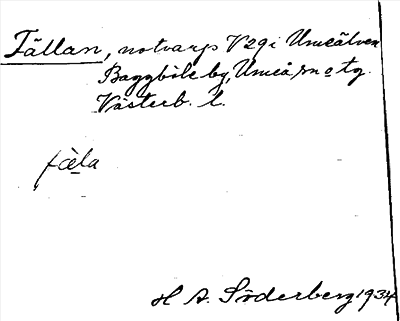 Fällan, notvarp V 29 i Umeälven
Baggböle by, Umeå sn o tg.
Västerb. l.
fä̀la
H A. Söderberg 1934